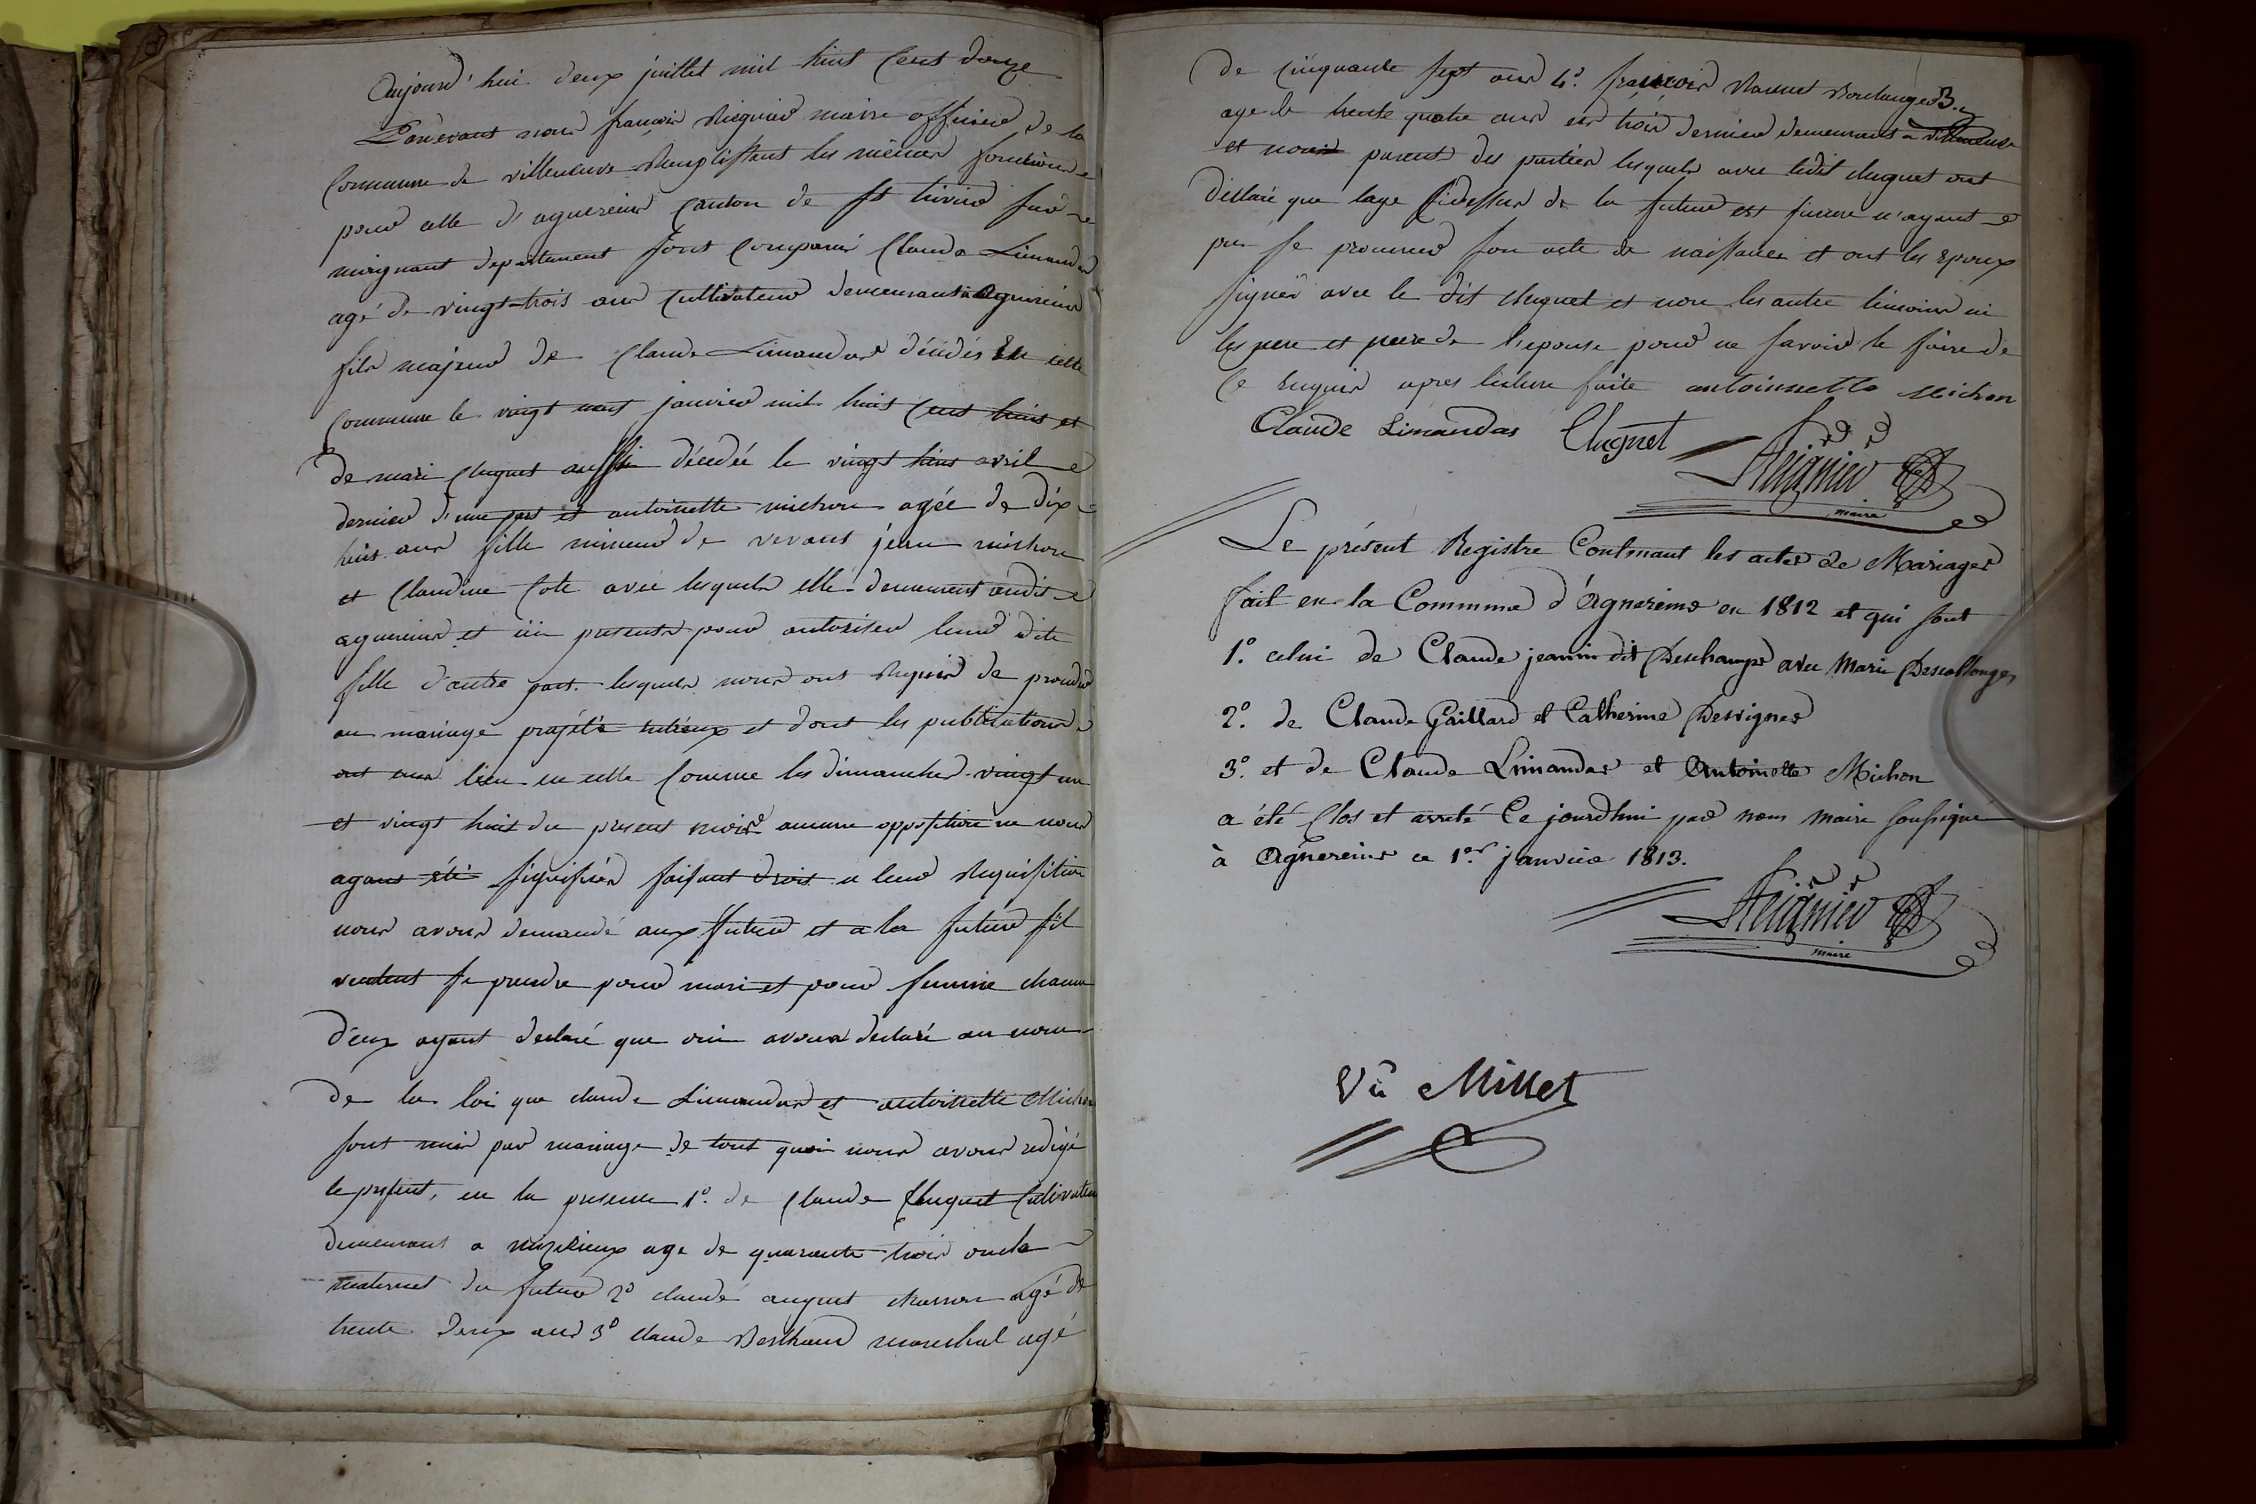 Aujourd'hui deux juillet mil huit Cent douze
Pardevant nous françois maire officier de la
Commune de villeneuve Remplissant les mêmes fonctions
pour celle d'agnereins Canton de St trivier sur
moignant departement sont Comparus Claude Limandas
agé de vingt-trois ans Cultivateur demeurant a agnereins
fils majeur de Claude Limandas décédés En cette
Commune le vingt janvier mil huit Cent huit et
de mari Cluguet aussi décédée le vingt huit avril
dernier d'une part et antoinette michon agée de dix
huit ans fille mineur de vivant jean michon
et Claudine Cote avec lesquels elle demeurent audit
agnereins et ici presents pour autoriser leur dite
fille d'autre part lesquels nous ont Requis de proceder
au mariage projété entreux et dont les publications
ont eues lieu en cette Comune les dimanches vingt un
et vingt huit du present mois aucune opposition ne nous
ayant été signifiés faisant droit a leur Requisition
nous avons demandé aux futur et a la future s'il
veulent se prendre pour mari et pour femme chacun
d'eux ayant declaré que oui avons declaré au nom
de la loi que claude Limandas et antoinette Michon
sont unis par mariage de tout quoi nous avons redigé
le present, en la presence 1º. de Claude Cluguet Cultivateur
demeurant a mizerieux age de quarante trois oncle
maternel du futur 2º claude august agé de
trente deux ans 3º Claude Berthaud marechal agé
de Cinquante sept ans 4º. francois Boulanger
age de trente quatre ans les trois dernier demeurants a villeneuve
et non parent des parties lesquels avec ledit cluguet ont
déclaré que lage Cidessus de la future est sincere n'ayant
pu se procurer son acte de naissance et ont les epoux
signés avec le dit cluguet et non les autre temoins ni
les pere et mere de l'epouse pour ne savoir le faire de
Ce Enquis apres lecture faite antoinnette Michon
Claude Limandas Cluguet
maire
Le présent Registre Contenant les actes de Mariages
fait en la Commune d'Agnereins en 1812 et qui sont
1º. celui de Claude jeannin dit Deschamps avec Marie Descollonges
2º. de Claude Gaillard et Catherine Desvignes
3º. et de Claude Limandas et Antoinette Michon
a été Clos et arreté Ce jourdhui par nous maire soussigné
à Agnereins ce 1er. janvier 1813.
maire
Vû Millet